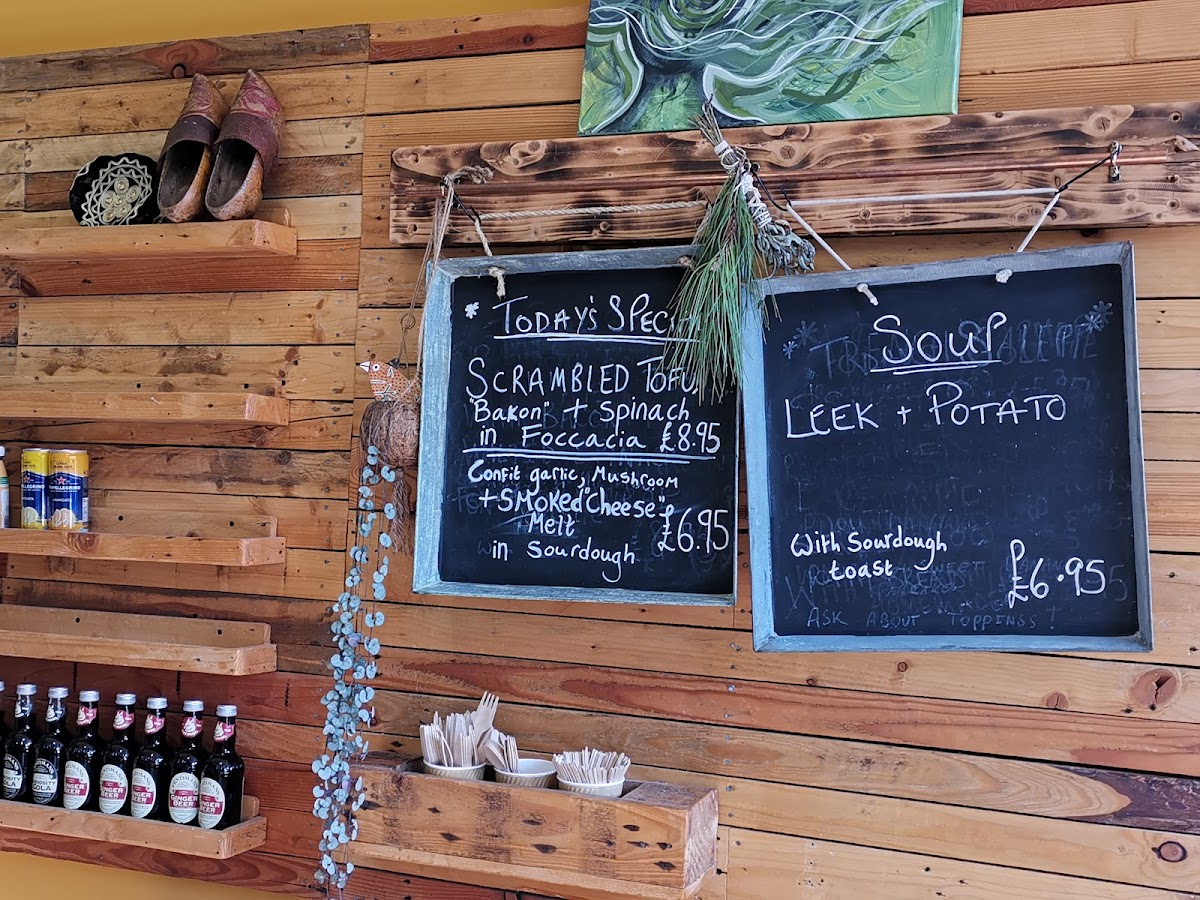 TODAY'S SPEC
SCRAMBLED TOFU,
"Bakon" + Spinach
in Foccacia £8.95
Confit garlic, Mushroom
+ SMOKED "Cheese"
Melt £6.95
in Sourdough
SOUP
LEEK + POTATO
With Sourdough
toast £6.95
ASK ABOUT TOPPINGS!
PELLEGRINO
COLA
GINGER
BEER
GINGER
BEER
GINGER
BEER
GINGER
BEER
GINGER
BEER